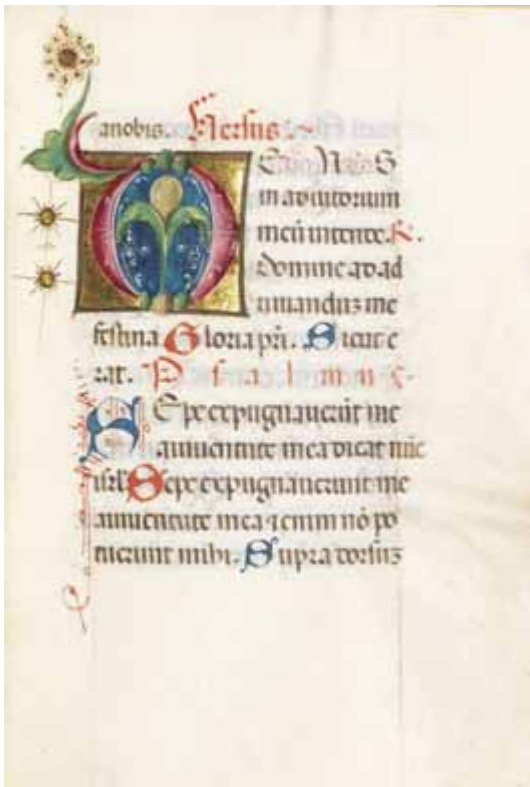 a nobis. Versus.
DEUS
in adiutorium
meū intende. R.
Domine ad ad
iuuanduz me
festina Gloria pr̄i. Sicut e
rat. Psalmus.
SEpe expugnauerūt me
a iuuentute mea dicat nūc
isrl̄ Sepe expugnauerunt me
a iuuentute mea ⁊ enim nō po
tuerunt mihi. Supra dorsuz